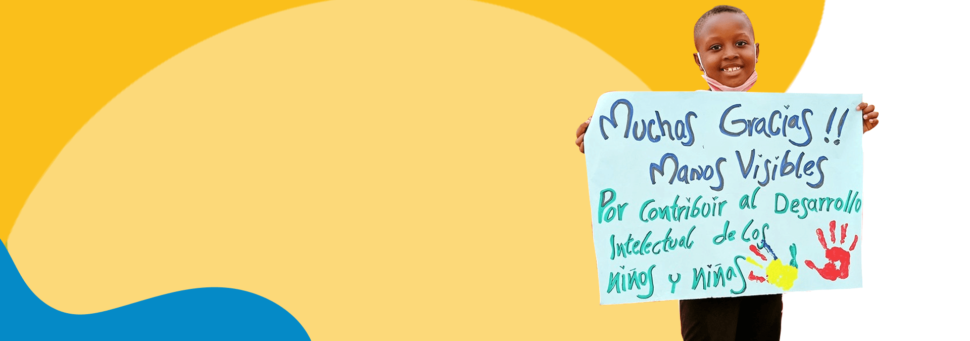 Muchas Gracias !!
Manos Visibles
Por Contribuir al Desarrollo
Intelectual de los
niños y niñas